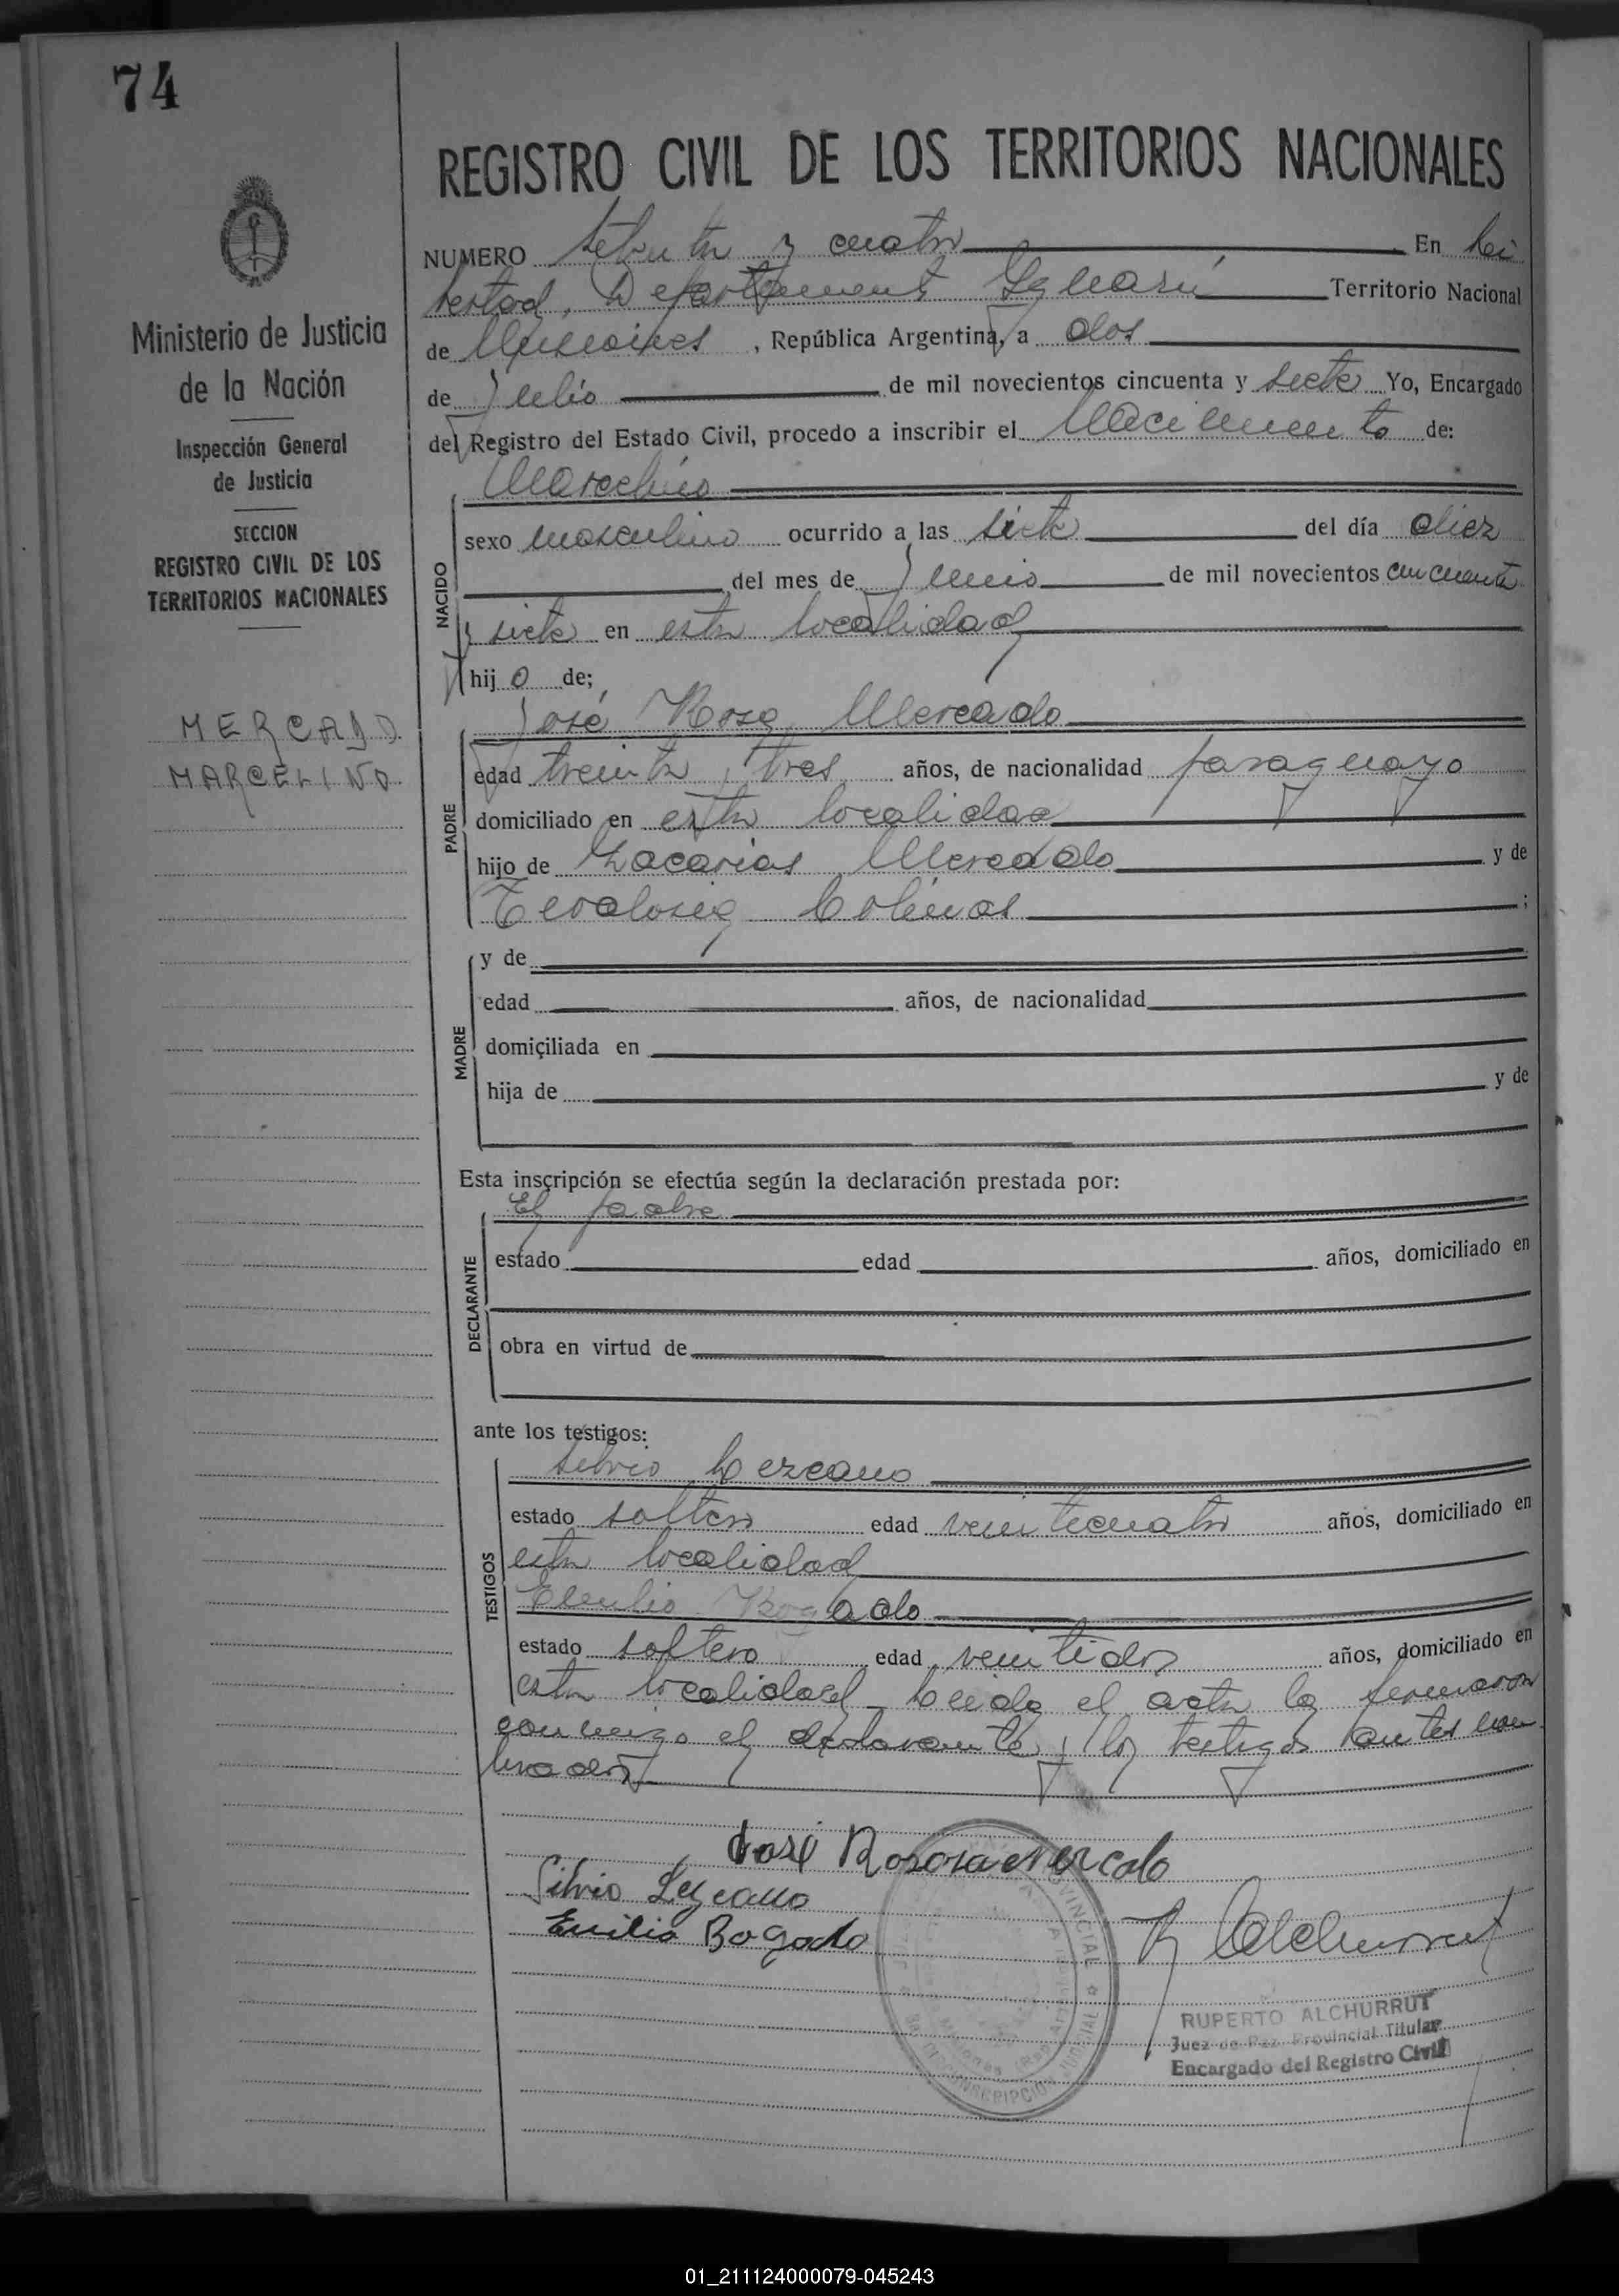 74
REGISTRO CIVIL DE LOS TERRITORIOS NACIONALES
Ministerio de Justicia
de la Nación
Inspección General
de Justicia
SECCION
REGISTRO CIVIL DE LOS
TERRITORIOS NACIONALES
MERCADO
MARCELINO
NUMERO setenta y cuatro En Li
bertad, Departamento Iguazú Territorio Nacional
de Misiones, República Argentina, a dos
de Julio de mil novecientos cincuenta y siete Yo, Encargado
del Registro del Estado Civil, procedo a inscribir el Nacimiento de:
NACIDO
Marcelino
sexo masculino ocurrido a las siete del día diez
del mes de Junio de mil novecientos cincuenta
y siete en esta localidad
hijo de;
PADRE
José Rosa Mercado
edad treinta y tres años, de nacionalidad paraguayo
domiciliado en esta localidad
hijo de Zacarias Mercado y de
Colinas ;
MADRE
y de
edad años, de nacionalidad
domiciliada en
hija de y de
Esta inscripción se efectúa según la declaración prestada por:
DECLARANTE
El padre
estado edad años, domiciliado en
obra en virtud de
ante los testigos:
TESTIGOS
Silvio Lezcano
estado soltero edad veinticuatro años, domiciliado en
esta localidad
Bogado
estado soltero edad veintidos años, domiciliado en
esta localidad - Leida el acta la firmaron
conmigo el declarante y los testigos antes nom
brados
José Mercado
Silvio Lezcano
Emilio Bogado
R Alchurrut
RUPERTO ALCHURRUT
Juez de Paz Provincial Titular
Encargado del Registro Civil
01_211124000079-045243